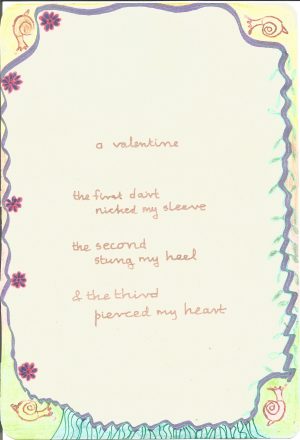 a valentine
the first dart
nicked my sleeve
the second
stung my heel
& the third
pierced my heart